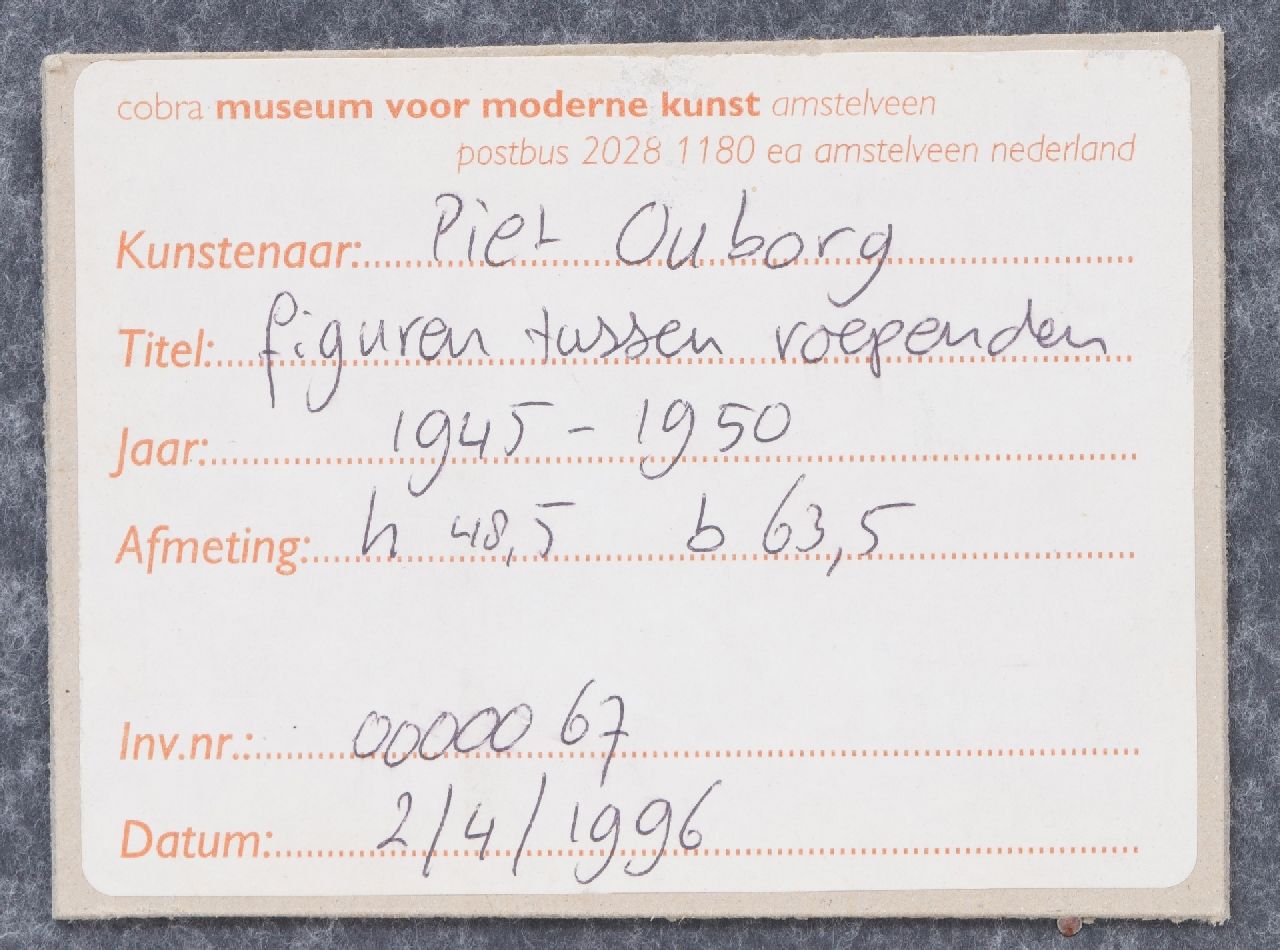 cobra museum voor moderne kunst amstelveen
postbus 2028 1180 ea amstelveen nederland
Kunstenaar: Piet Ouborg
Titel: figuren tussen roependen
Jaar: 1945 - 1950
Afmeting: h 48,5 b 63,5
Inv.nr.: 00000 67
Datum: 2/4/1996